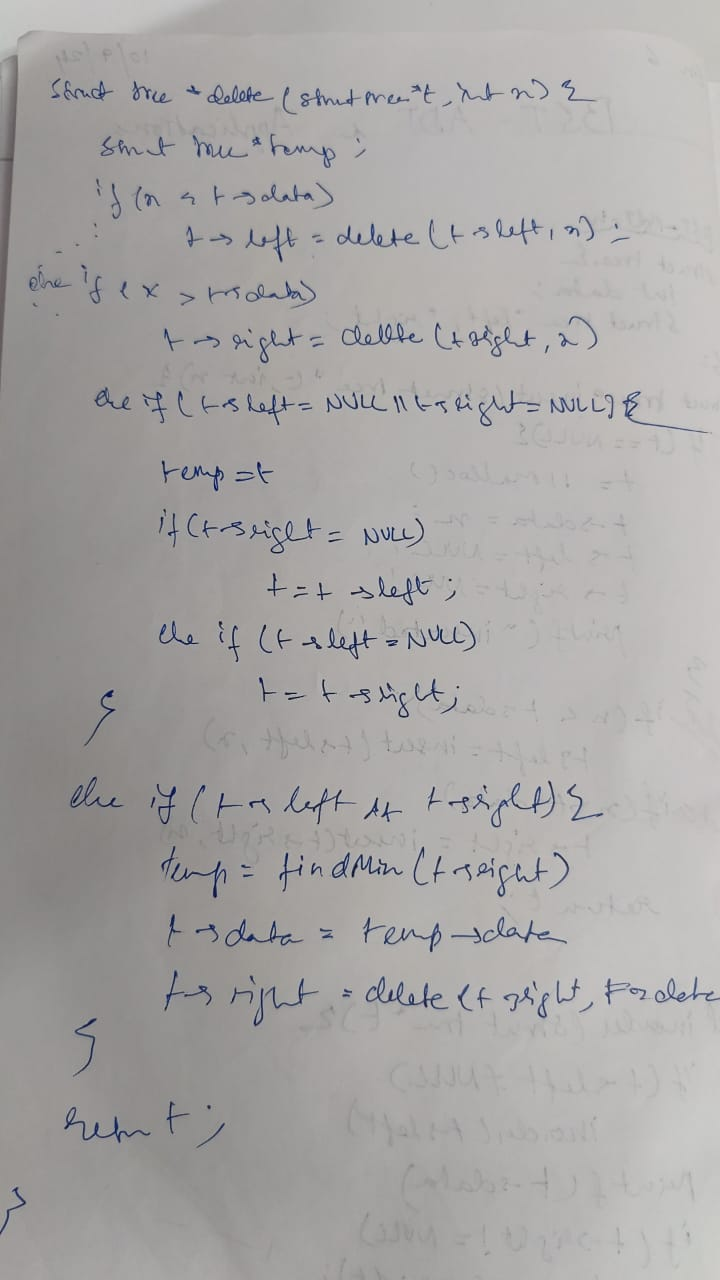 struct tree * delete (struct tree *t, int x) {
struct tree * temp ;
if (x < t->data)
t -> left = delete (t->left, x) ;
else if (x > t->data)
t -> right = delete (t->right, x)
else if (t->left = NULL || t->right = NULL) {
temp = t
if (t->right = NULL)
t = t -> left ;
else if (t->left = NULL)
t = t ->right ;
}
else if (t-> left && t->right) {
temp = findMin (t->right)
t->data = temp->data
t-> right = delete (t->right, t->data
}
return t ;
}